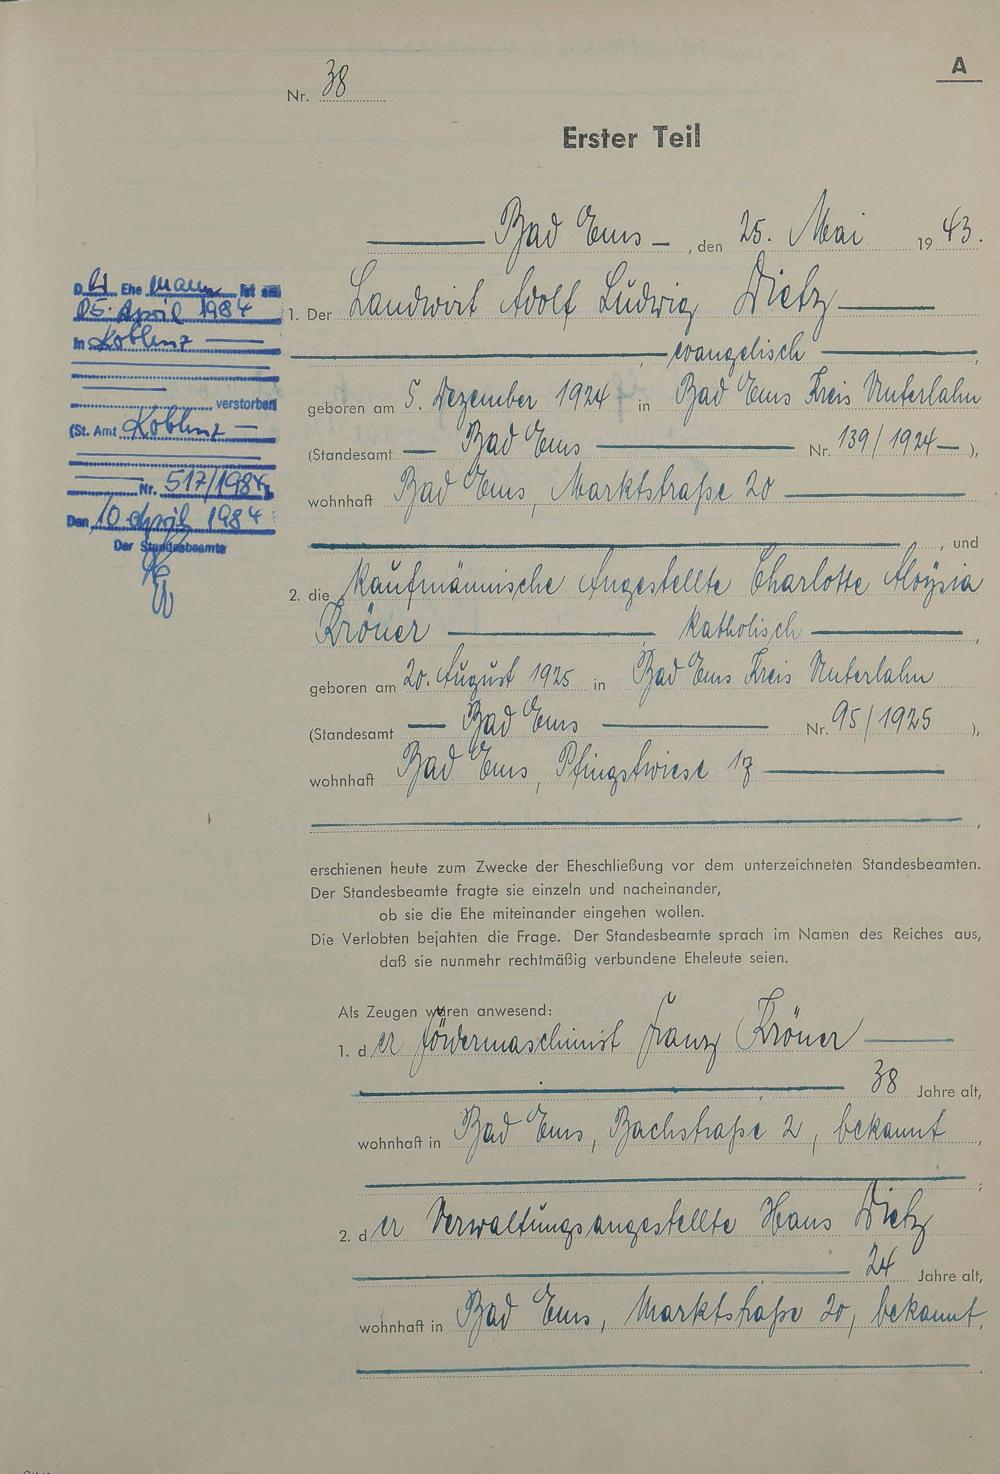 A
Nr. 38
Erster Teil
Bad Ems, den 25. Mai 1943.
1. Der Landwirt Adolf Ludwig Dietz
evangelisch,
geboren am 5. Dezember 1924 in Bad Ems Kreis Unterlahn
(Standesamt Bad Ems Nr. 139/1924),
wohnhaft Bad Ems, Marktstraße 20
, und
2. die kaufmännische Angestellte Charlotte Aloysia
Kröner katholisch,
geboren am 20. August 1925 in Bad Ems Kreis Unterlahn
(Standesamt Bad Ems Nr. 95/1925),
wohnhaft Bad Ems, Pfingstwiese 17
,
erschienen heute zum Zwecke der Eheschließung vor dem unterzeichneten Standesbeamten.
Der Standesbeamte fragte sie einzeln und nacheinander,
ob sie die Ehe miteinander eingehen wollen.
Die Verlobten bejahten die Frage. Der Standesbeamte sprach im Namen des Reiches aus,
daß sie nunmehr rechtmäßig verbundene Eheleute seien.
Als Zeugen waren anwesend:
1. der Fördermaschinist Franz Kröner
38 Jahre alt,
wohnhaft in Bad Ems, Bachstraße 2, bekannt,
;
2. der Verwaltungsangestellte Hans Dietz
24 Jahre alt,
wohnhaft in Bad Ems, Marktstraße 20, bekannt.
Der Ehemann ist am
05. April 1984
in Koblenz
verstorben
(St. Amt Koblenz
Nr. 517/1984)
Den 10 April 1984
Der Standesbeamte